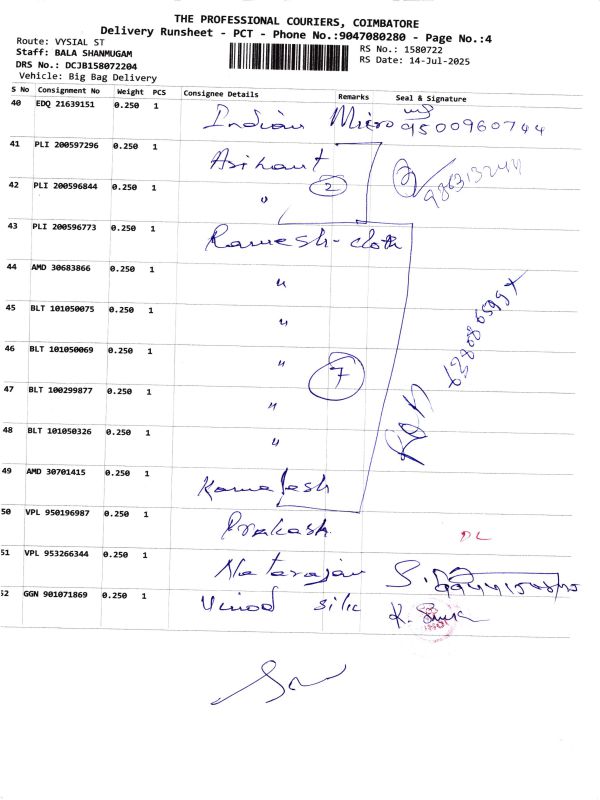 THE PROFESSIONAL COURIERS, COIMBATORE
Delivery Runsheet - PCT - Phone No.:9047080280 - Page No.:4
Route: VYSIAL ST
Staff: BALA SHANMUGAM
DRS No.: DCJB158072204
Vehicle: Big Bag Delivery
RS No.: 1580722
RS Date: 14-Jul-2025
S No Consignment No Weight PCS Consignee Details Remarks Seal & Signature
40 EDQ 21639151 0.250 1 Indian Micro 9500960744
41 PLI 200597296 0.250 1 Asihant
42 PLI 200596844 0.250 1 〃 2
43 PLI 200596773 0.250 1 Ramesh-cloth
44 AMD 30683866 0.250 1 〃
45 BLT 101050075 0.250 1 〃
46 BLT 101050069 0.250 1 〃 7
47 BLT 100299877 0.250 1 〃
48 BLT 101050326 0.250 1 〃
49 AMD 30701415 0.250 1 Kamalesh
50 VPL 950196987 0.250 1 Prakash DL
51 VPL 953266344 0.250 1 Natarajan
52 GGN 901071869 0.250 1 Vinod silic